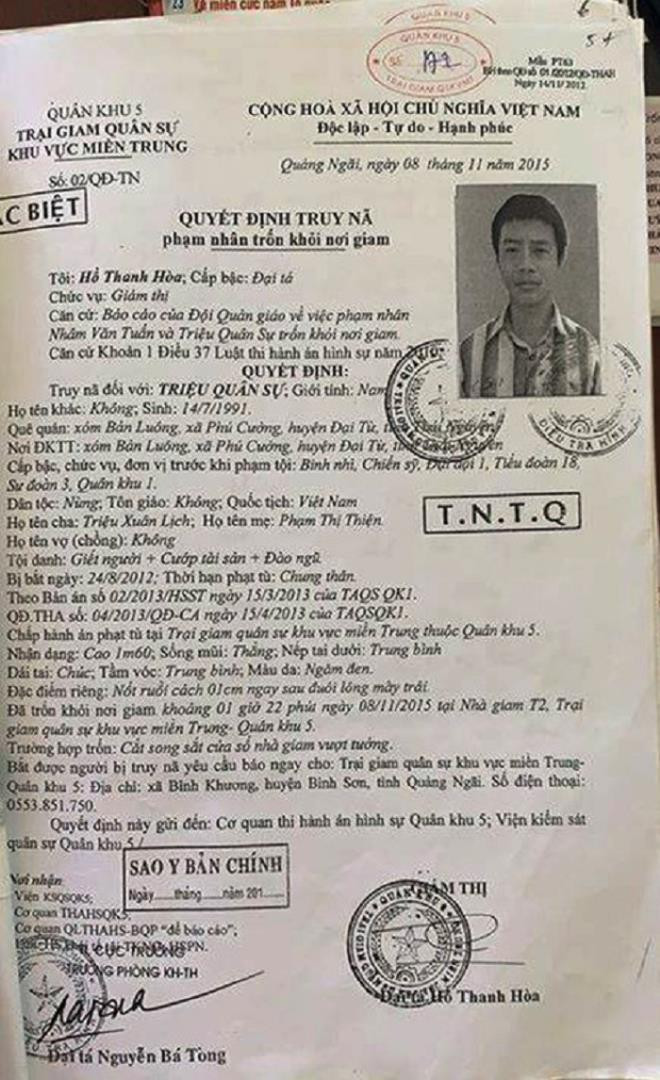 Về miền cực nam
5+
QUÂN KHU 5
SỐ
TRẠI GIAM QUÂN SỰ
Mẫu PT63
BH theo QĐ số 01/2012/QĐ-THAH
Ngày 14/11/2012
QUÂN KHU 5
TRẠI GIAM QUÂN SỰ
KHU VỰC MIỀN TRUNG
Số: 02/QĐ-TN
CỘNG HOÀ XÃ HỘI CHỦ NGHĨA VIỆT NAM
Độc lập - Tự do - Hạnh phúc
Quảng Ngãi, ngày 08 tháng 11 năm 2015
ẶC BIỆT
QUYẾT ĐỊNH TRUY NÃ
phạm nhân trốn khỏi nơi giam
Tôi: Hồ Thanh Hòa; Cấp bậc: Đại tá
Chức vụ: Giám thị
Căn cứ: Báo cáo của Đội Quản giáo về việc phạm nhân
Nhâm Văn Tuấn và Triệu Quân Sự trốn khỏi nơi giam.
Căn cứ Khoản 1 Điều 37 Luật thi hành án hình sự năm
QUYẾT ĐỊNH:
Truy nã đối với: TRIỆU QUÂN SỰ; Giới tính: Nam
Họ tên khác: Không; Sinh: 14/7/1991.
Quê quán: xóm Bản Luông, xã Phú Cường, huyện Đại Từ,
Nơi ĐKTT: xóm Bản Luông, xã Phú Cường, huyện Đại Từ,
Cấp bậc, chức vụ, đơn vị trước khi phạm tội: Binh nhì, Chiến sỹ, Đại đội 1, Tiểu đoàn 18,
Sư đoàn 3, Quân khu 1.
Dân tộc: Nùng; Tôn giáo: Không; Quốc tịch: Việt Nam
Họ tên cha: Triệu Xuân Lịch; Họ tên mẹ: Phạm Thị Thiện.
Họ tên vợ (chồng): Không
T.N.T.Q
Tội danh: Giết người + Cướp tài sản + Đào ngũ.
Bị bắt ngày: 24/8/2012; Thời hạn phạt tù: Chung thân.
Theo Bản án số 02/2013/HSST ngày 15/3/2013 của TAQS QK1.
QĐ.THA số: 04/2013/QĐ-CA ngày 15/4/2013 của TAQSQK1.
Chấp hành án phạt tù tại Trại giam quân sự khu vực miền Trung thuộc Quân khu 5.
Nhận dạng: Cao 1m60; Sống mũi: Thẳng; Nếp tai dưới: Trung bình
Dái tai: Chúc; Tầm vóc: Trung bình; Màu da: Ngăm đen.
Đặc điểm riêng: Nốt ruồi cách 01cm ngay sau đuôi lông mày trái.
Đã trốn khỏi nơi giam khoảng 01 giờ 22 phút ngày 08/11/2015 tại Nhà giam T2, Trại
giam quân sự khu vực miền Trung- Quân khu 5.
Trường hợp trốn: Cắt song sắt cửa sổ nhà giam vượt tường.
Bắt được người bị truy nã yêu cầu báo ngay cho: Trại giam quân sự khu vực miền Trung-
Quân khu 5: Địa chỉ: xã Bình Khương, huyện Bình Sơn, tỉnh Quảng Ngãi. Số điện thoại:
0553.851.750.
Quyết định này gửi đến: Cơ quan thi hành án hình sự Quân khu 5; Viện kiểm sát
quân sự Quân khu 5./
SAO Y BẢN CHÍNH
Ngày......tháng......năm 201......
Nơi nhận
Viện KSQSQK5;
Cơ quan THAHSQK5;
Cơ quan QLTHAHS-BQP “để báo cáo”;
CỤC TRƯỞNG
TRƯỞNG PHÒNG KH-TH
Đại tá Nguyễn Bá Tòng
GIÁM THỊ
Đại tá Hồ Thanh Hòa